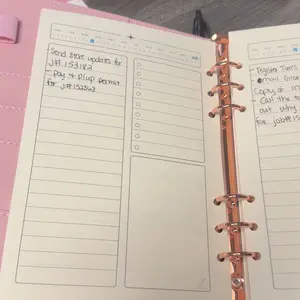 Send start updates for
J# 153182
Pay & P/up permit
for J#152563
Register Tim's
Copy of
- Call the
out why
for job#15